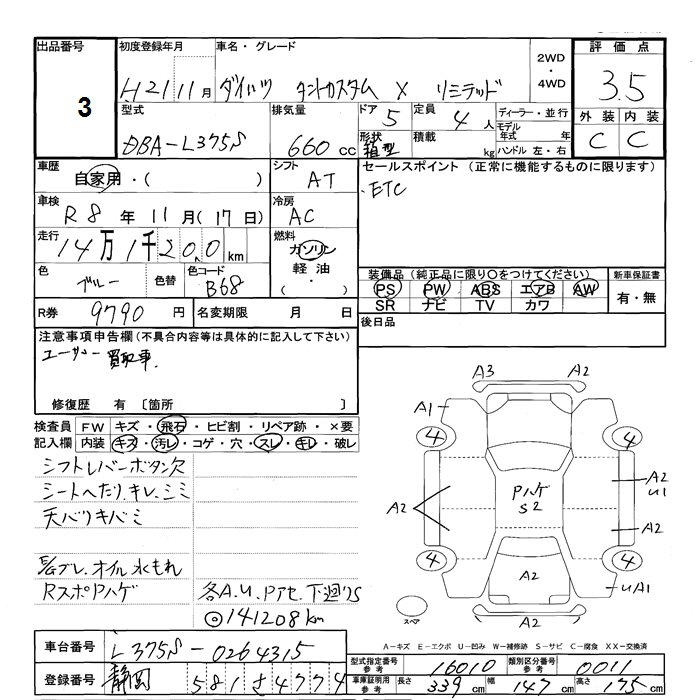 出品番号 初度登録年月 車名・グレード 2WD ・ 4WD 評価点
3 H21 11月 ダイハツ タントカスタム X リミテッド 3.5
型式 排気量 ドア 5 定員 4人 ディーラー・並行 外装 内装
DBA-L375S 660cc 形状 箱型 積載 kg モデル年式 年 C C
ハンドル 左・右
車歴 自家用・( ) シフト AT セールスポイント (正常に機能するものに限ります)
・ETC
車検 R8年 11月(17日) 冷房 AC
走行 14万1千200km 燃料 ガソリン 軽油 ・( )
色 ブルー 色替 色コード B68
装備品(純正品に限り○をつけてください) 新車保証書
PS PW ABS エアB AW 有・無
SR ナビ TV カワ
R券 9790円 名変期限 月 日 後日品
注意事項申告欄(不具合内容等は具体的に記入して下さい)
ユーザー買取車.
修復歴 有 〔箇所 〕
検査員 FW キズ・飛石・ヒビ割・リペア跡・×要
記入欄 内装 キズ・汚レ・コゲ・穴・スレ・キレ・破レ
シフトレバーボタン欠
シートへたり.キレ.シミ
天バリキバミ
オイル水もれ
RスポPハゲ 各A.U.Pアセ.下廻りS
◎141208km
A3 A2
A1
4 4
A2 PハゲS2 A2 U1
A2
4 4
A2 UA1
スペア A2
A-キズ E-エクボ U-凹み W-補修跡 S-サビ C-腐食 XX-交換済
車台番号 L375S-0264315 型式指定番号 参考 16010 類別区分番号 参考 0011
登録番号 静岡 581さ4774 車庫証明用 参考 長さ 339cm 幅 147cm 高さ 175cm